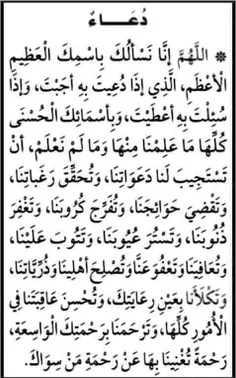 دُعَـــاءٌ
* اللَّهُمَّ إِنَّا نَسْأَلُكَ بِاسْمِكَ الْعَظِيمِ
الْأَعْظَمِ، الَّذِي إِذَا دُعِيتَ بِهِ أَجَبْتَ، وَإِذَا
سُئِلْتَ بِهِ أَعْطَيْتَ، وَبِأَسْمَائِكَ الْحُسْنَى
كُلِّهَا مَا عَلِمْنَا مِنْهَا وَمَا لَمْ نَعْلَمْ، أَنْ
تَسْتَجِيبَ لَنَا دَعَوَاتِنَا، وَتُحَقِّقَ رَغَبَاتِنَا،
وَتَقْضِيَ حَوَائِجَنَا، وَتُفَرِّجَ كُرُوبَنَا، وَتَغْفِرَ
ذُنُوبَنَا، وَتَسْتُرَ عُيُوبَنَا، وَتَتُوبَ عَلَيْنَا،
وَتُعَافِيَنَا وَتَعْفُوَ عَنَّا وَتُصْلِحَ أَهْلِينَا وَذُرِّيَّاتِنَا،
وَتَكْلَأَنَا بِعَيْنِ رِعَايَتِكَ، وَتُحْسِنَ عَاقِبَتَنَا فِي
الْأُمُورِ كُلِّهَا، وَتَرْحَمَنَا بِرَحْمَتِكَ الْوَاسِعَةِ،
رَحْمَةً تُغْنِينَا بِهَا عَنْ رَحْمَةِ مَنْ سِوَاكَ.